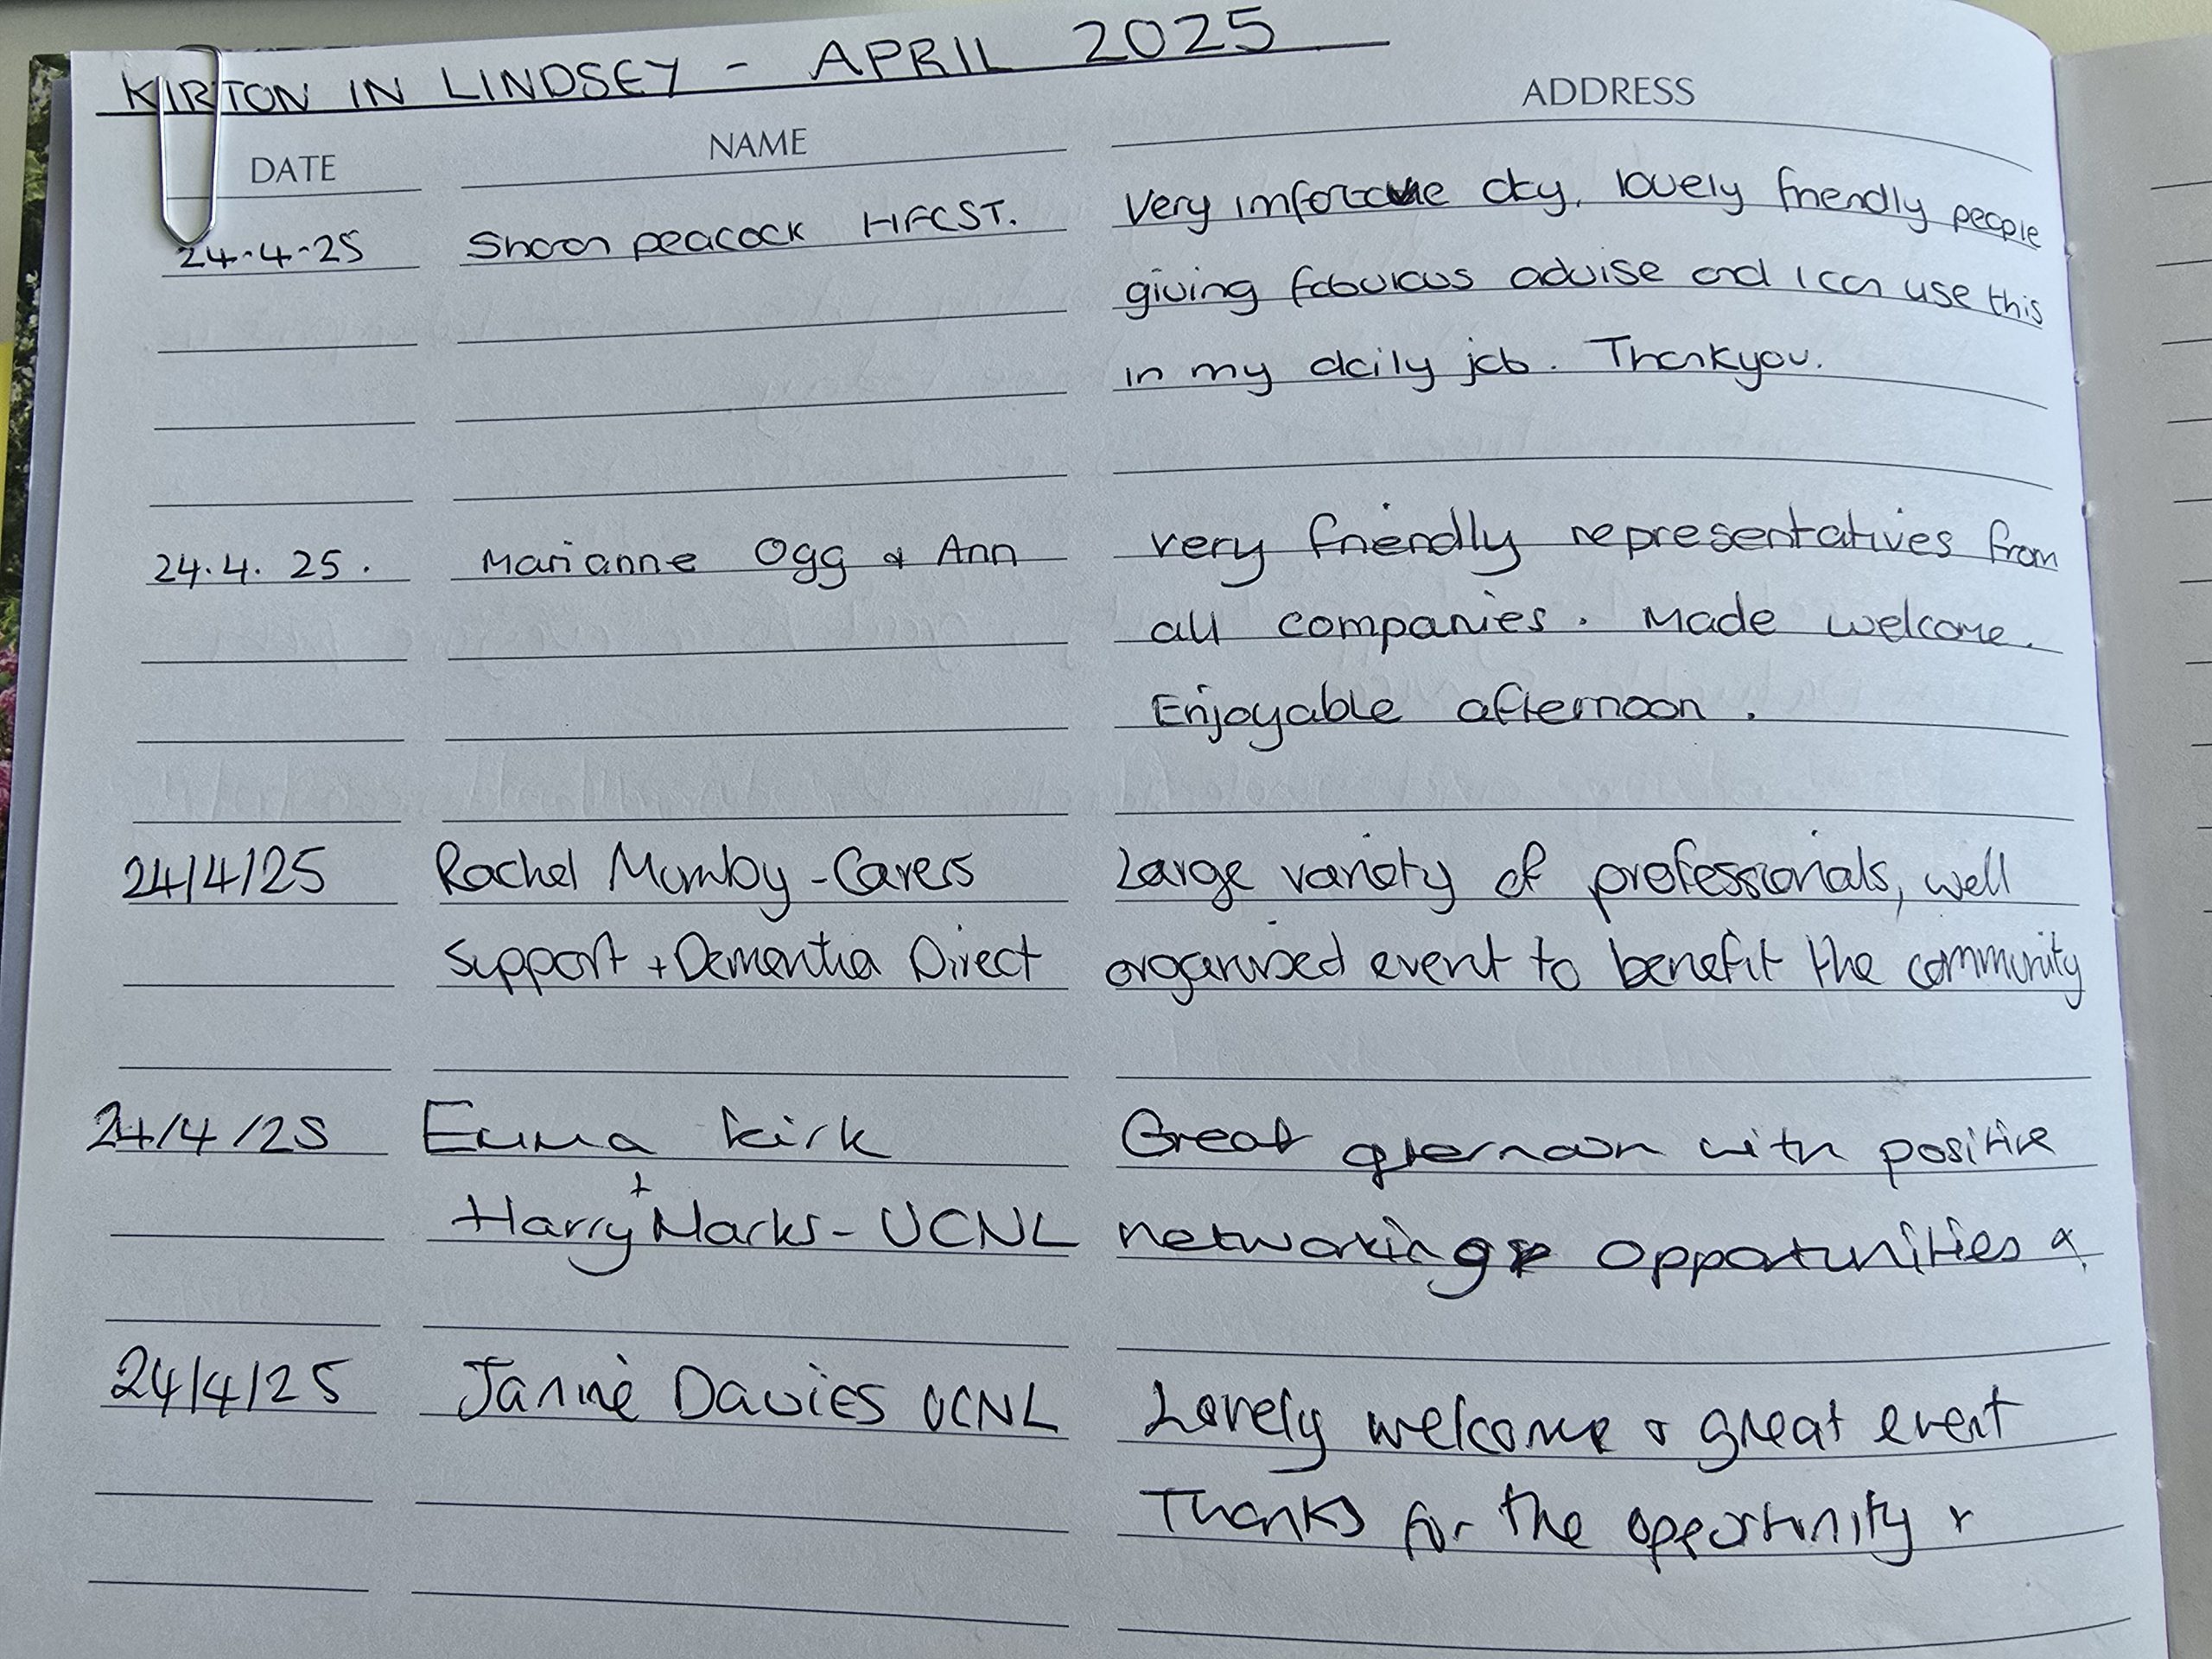 KIRTON IN LINDSEY - APRIL 2025
DATE NAME ADDRESS
24.4.25 Sharon peacock HFCST. Very imforative day, lovely friendly people
giving fabulous advise and I can use this
in my daily job. Thankyou.
24.4.25. Marianne Ogg & Ann very friendly representatives from
all companies. Made welcome.
Enjoyable afternoon.
24/4/25 Rachel Mumby - Carers Large variety of professionals, well
Support + Dementia Direct organised event to benefit the community
24/4/25 Emma Kirk Great afternoon with positive
+
Harry Marks - UCNL networking opportunities
24/4/25 Janine Davies UCNL Lovely welcome & great event
Thanks for the opportunity x